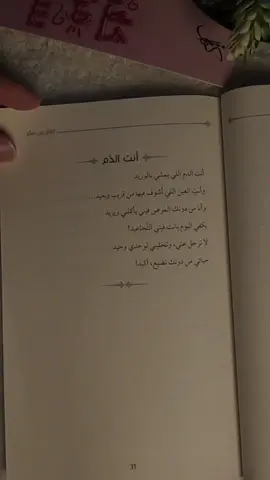 أنت الدم
أنت الدم اللي يمشي بالوريد
وأنت العين اللي أشوف فيها من قريب وبعيد
وأنا من دونك الجرحي فيني يأكلني ويزيد
يكفي اليوم بانت فيني التجاعيد!
لا ترحل عني، وتخليني لوحدي وحيد
حياتي من دونك تضيع، أكيد!
31